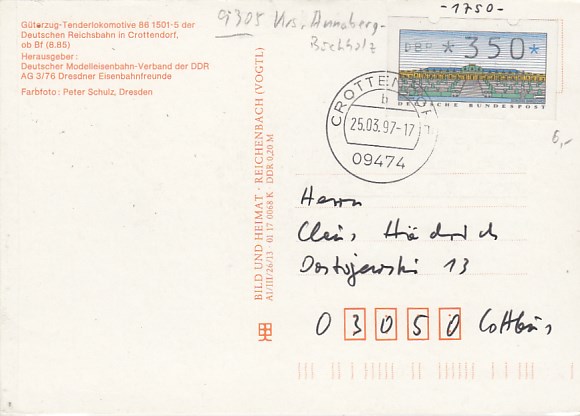 Güterzug-Tenderlokomotive 86 1501-5 der
Deutschen Reichsbahn in Crottendorf,
ob Bf (8.85)
Herausgeber:
Deutscher Modelleisenbahn-Verband der DDR
AG 3/76 Dresdner Eisenbahnfreunde
Farbfoto: Peter Schulz, Dresden
09305 Krs. Annaberg-
Buchholz
-1750-
DBP *350*
DEUTSCHE BUNDESPOST
CROTTENDORF
b
25.03.97-17
09474
6,-
BILD UND HEIMAT · REICHENBACH (VOGTL)
A1/III/26/13 · 01 17 0068 K DDR 0,20 M
Herrn
Claus Hädrich
Dostojewski 13
03050 Cottbus